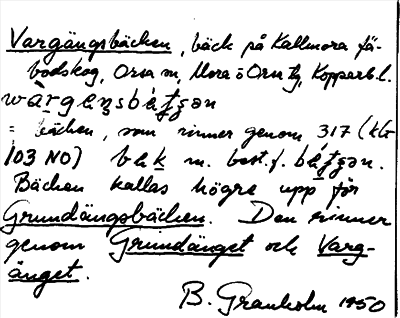 Vargängsbäcken, bäck på Kallmora fä-
bodskog, Orsa sn, Mora o Orsa tg, Kopparb. l.
wàrgeŋsbétʃən
= bäcken, som rinner genom 317 (kbl
103 NO) bek m. best. f. bétʃən.
Bäcken kallas högre upp för
Grundängsbäcken. Den rinner
genom Grundänget och Varg-
änget.
B. Granholm 1950